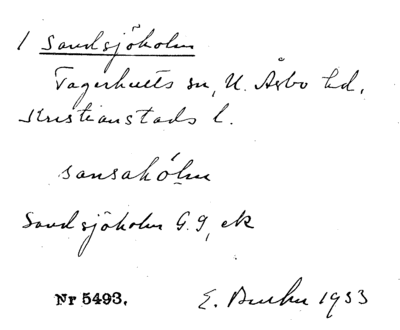 1 Sandsjöholm
Fagerhults sn, N. Åsbo hd,
Kristianstads l.
sansahólm
Sandsjöholm G. 9, ek
Nr 5493. E. 1933